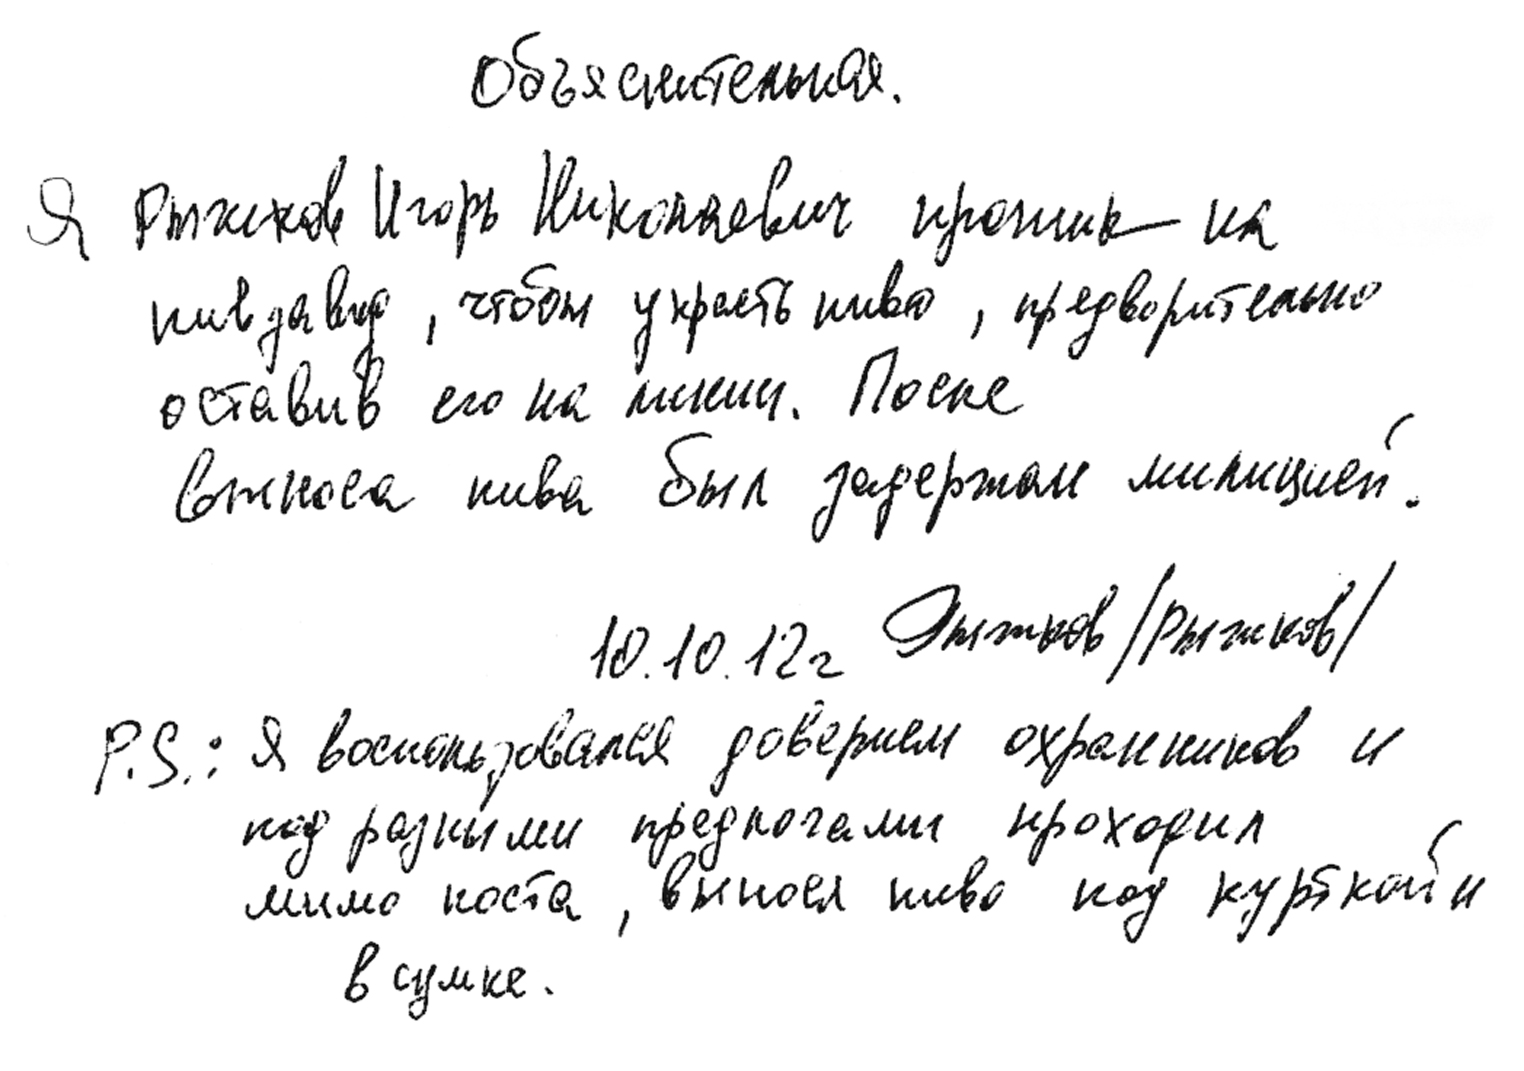 Объяснительная.
Я Рыжков Игорь Николаевич проник на
пивзавод, чтобы украсть пиво, предворительно
оставив его на линии. После
выноса пива был задержан милицией.
10.10.12г Рыжков /Рыжков/
P.S.: Я воспользовался доверием охранников и
под разными предлогами проходил
мимо поста, вынося пиво под курткой и
в сумке.